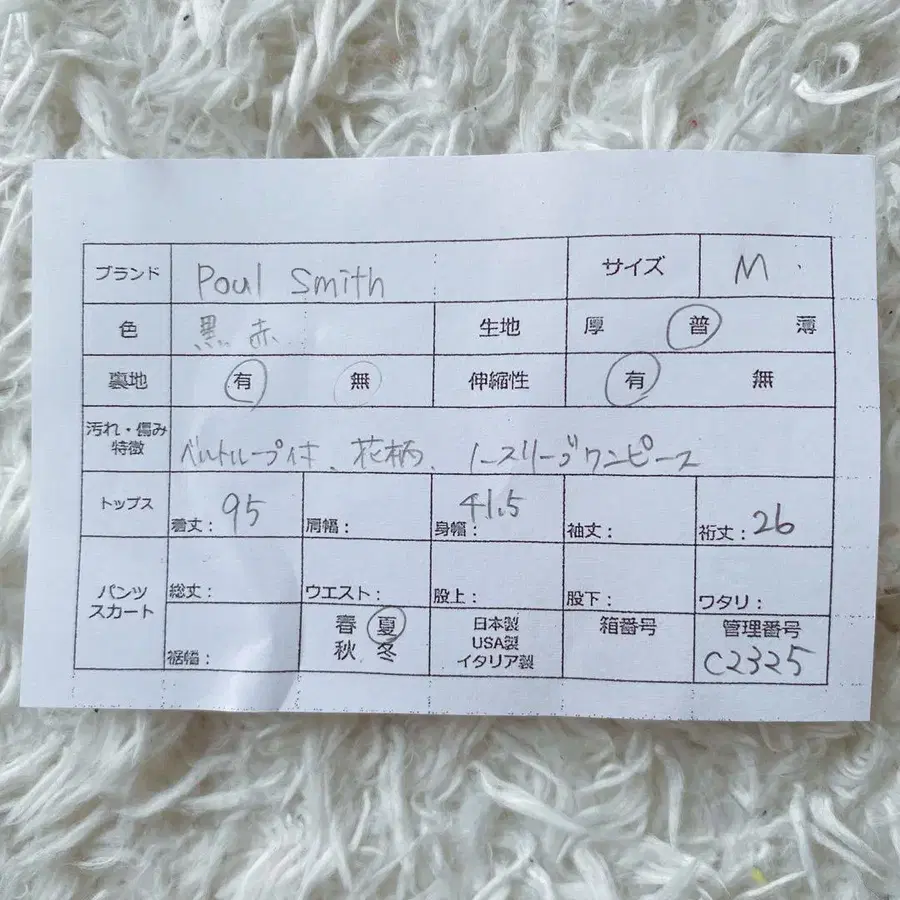 ブランド Poul Smith サイズ M
色 黒 赤 生地 厚 普 薄
裏地 有 無 伸縮性 有 無
汚れ・傷み
特徴 ベルトループ付、花柄、ノースリーブワンピース
トップス 着丈: 95 肩幅: 身幅: 41.5 袖丈: 裄丈: 26
パンツ
スカート 総丈: ウエスト: 股上: 股下: ワタリ:
裾幅:
春 夏
秋 冬
日本製
USA製
イタリア製
箱番号
管理番号
C2325